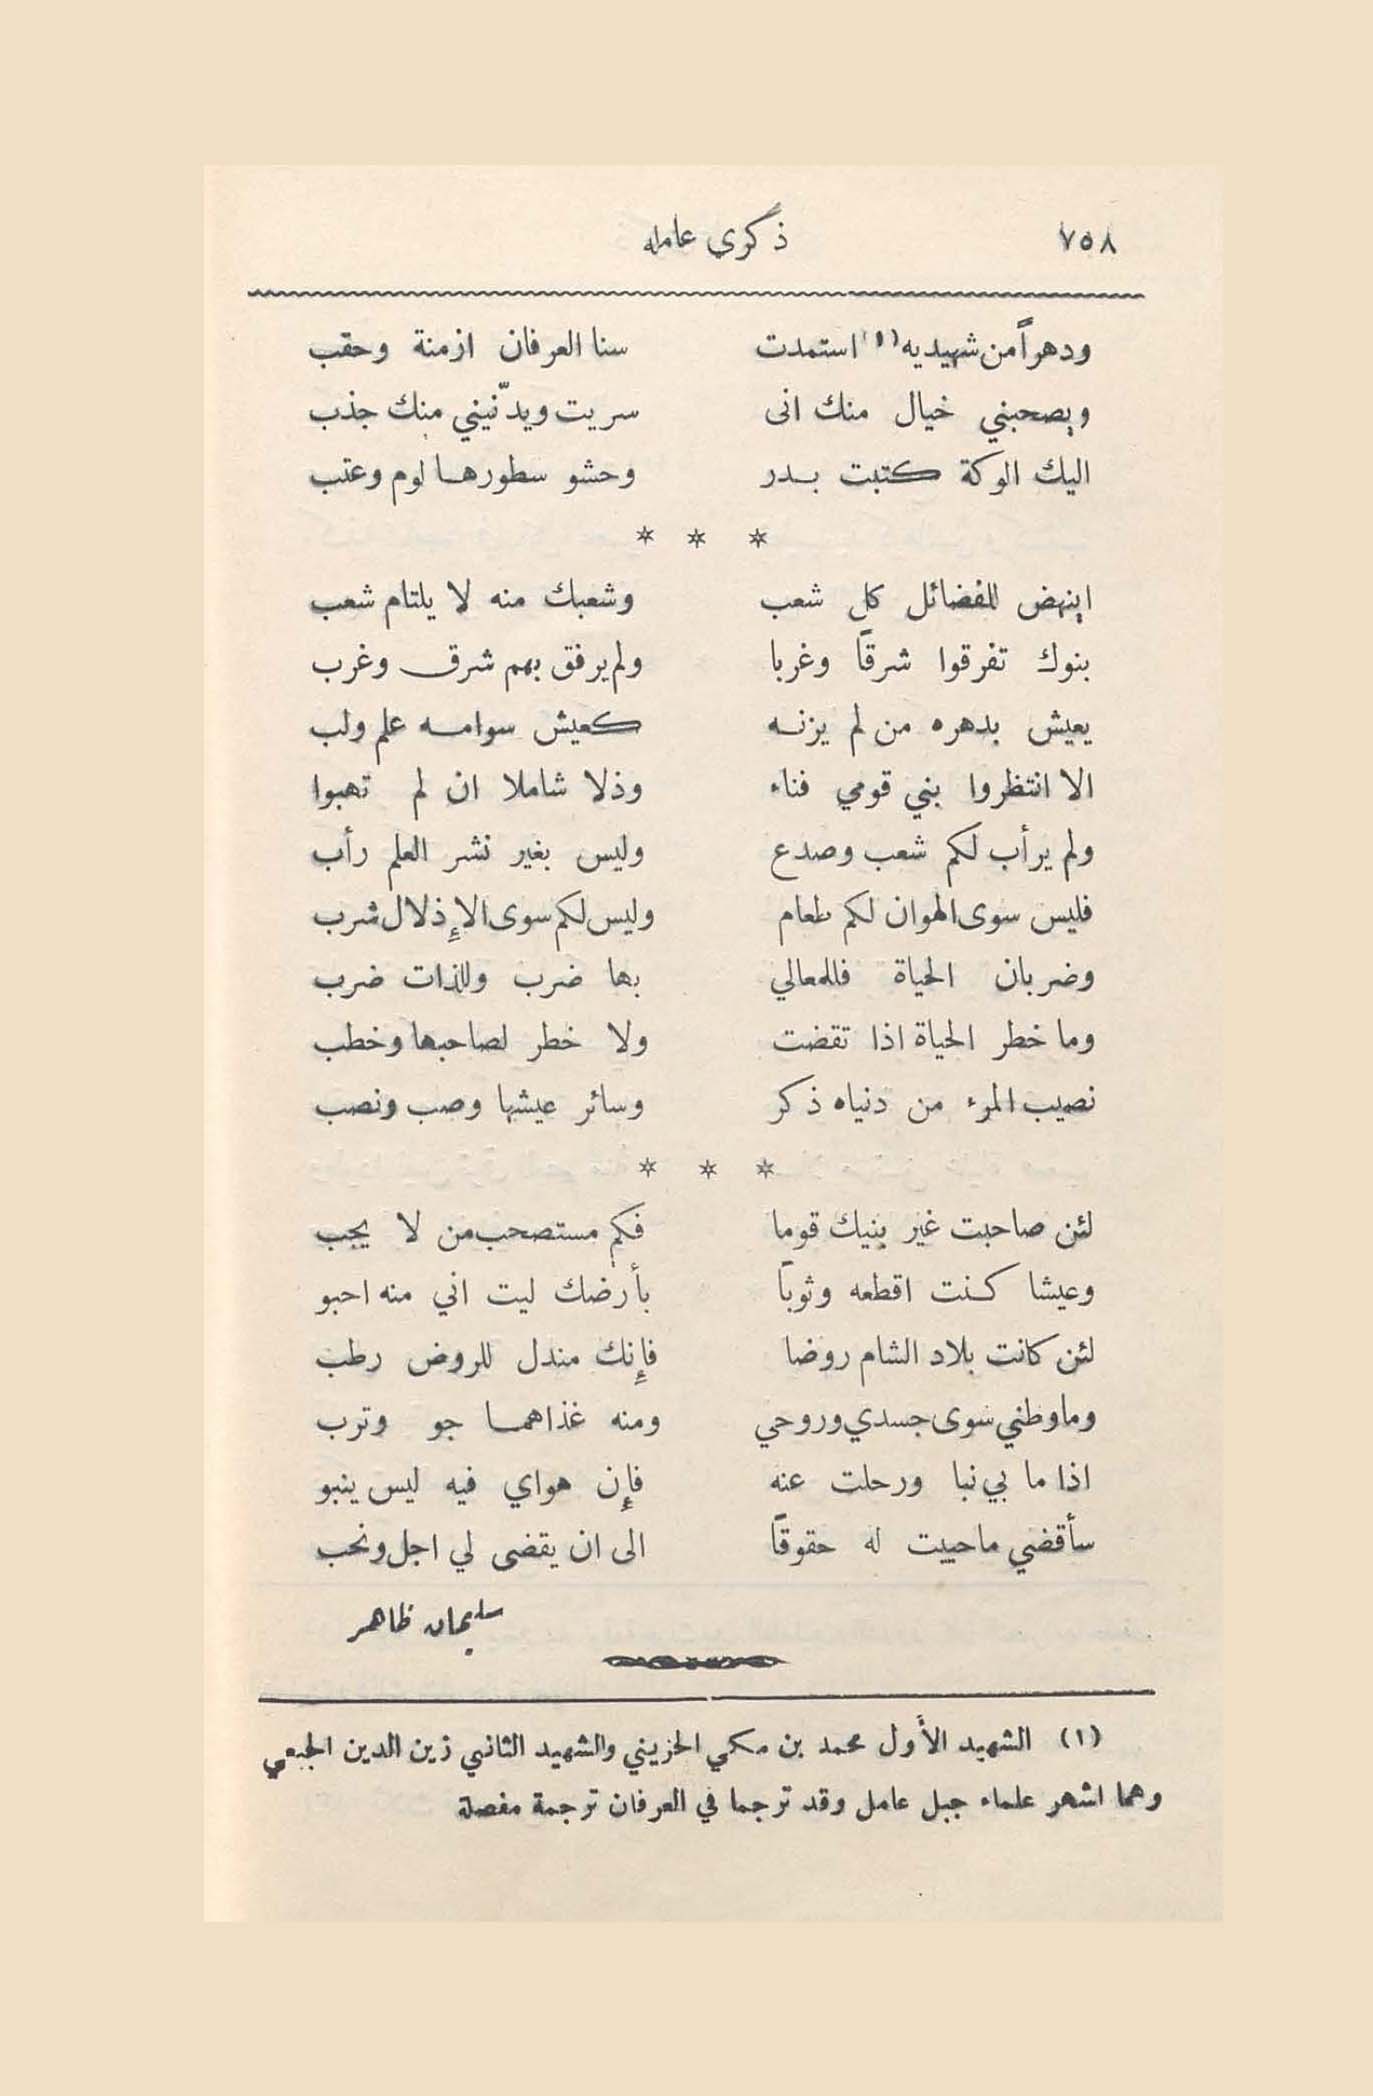 ٧٥٨ ذكرى عامله
ودهراً من شهيديه (١) استمدت سنا العرفان ازمنة وحقب
ويصحبني خيال منك انى سريت ويدّنيني منك جذب
اليك الوكة كتبت بدر وحشو سطورها لوم وعتب
* * *
اينهض للفضائل كل شعب وشعبك منه لا يلتام شعب
بنوك تفرقوا شرقاً وغربا ولم يرفق بهم شرق وغرب
يعيش بدهره من لم يزنه كعيش سوامه علم ولب
الا انتظروا بني قومي فناء وذلا شاملا ان لم تهبوا
ولم يرأب لكم شعب وصدع وليس بغير نشر العلم رأب
فليس سوى الهوان لكم طعام وليس لكم سوى الإذلال شرب
وضربان الحياة فللمعالي بها ضرب وللذات ضرب
وما خطر الحياة اذا تقضت ولا خطر لصاحبها وخطب
نصيب المرء من دنياه ذكر وسائر عيشها وصب ونصب
* * *
لئن صاحبت غير بنيك قوما فكم مستصحب من لا يحب
وعيشا كنت اقطعه وثوباً بأرضك ليت اني منه احبو
لئن كانت بلاد الشام روضا فإنك مندل للروض رطب
وما وطني سوى جسدي وروحي ومنه غذاهما جو وترب
اذا ما بي نبا ورحلت عنه فإن هواي فيه ليس ينبو
سأقضي ما حييت له حقوقاً الى ان يقضى لي اجل ونحب
سليمان ظاهر
(١) الشهيد الأول محمد بن مكي الجزيني والشهيد الثاني زين الدين الجبعي
وهما اشهر علماء جبل عامل وقد ترجما في العرفان ترجمة مفصلة